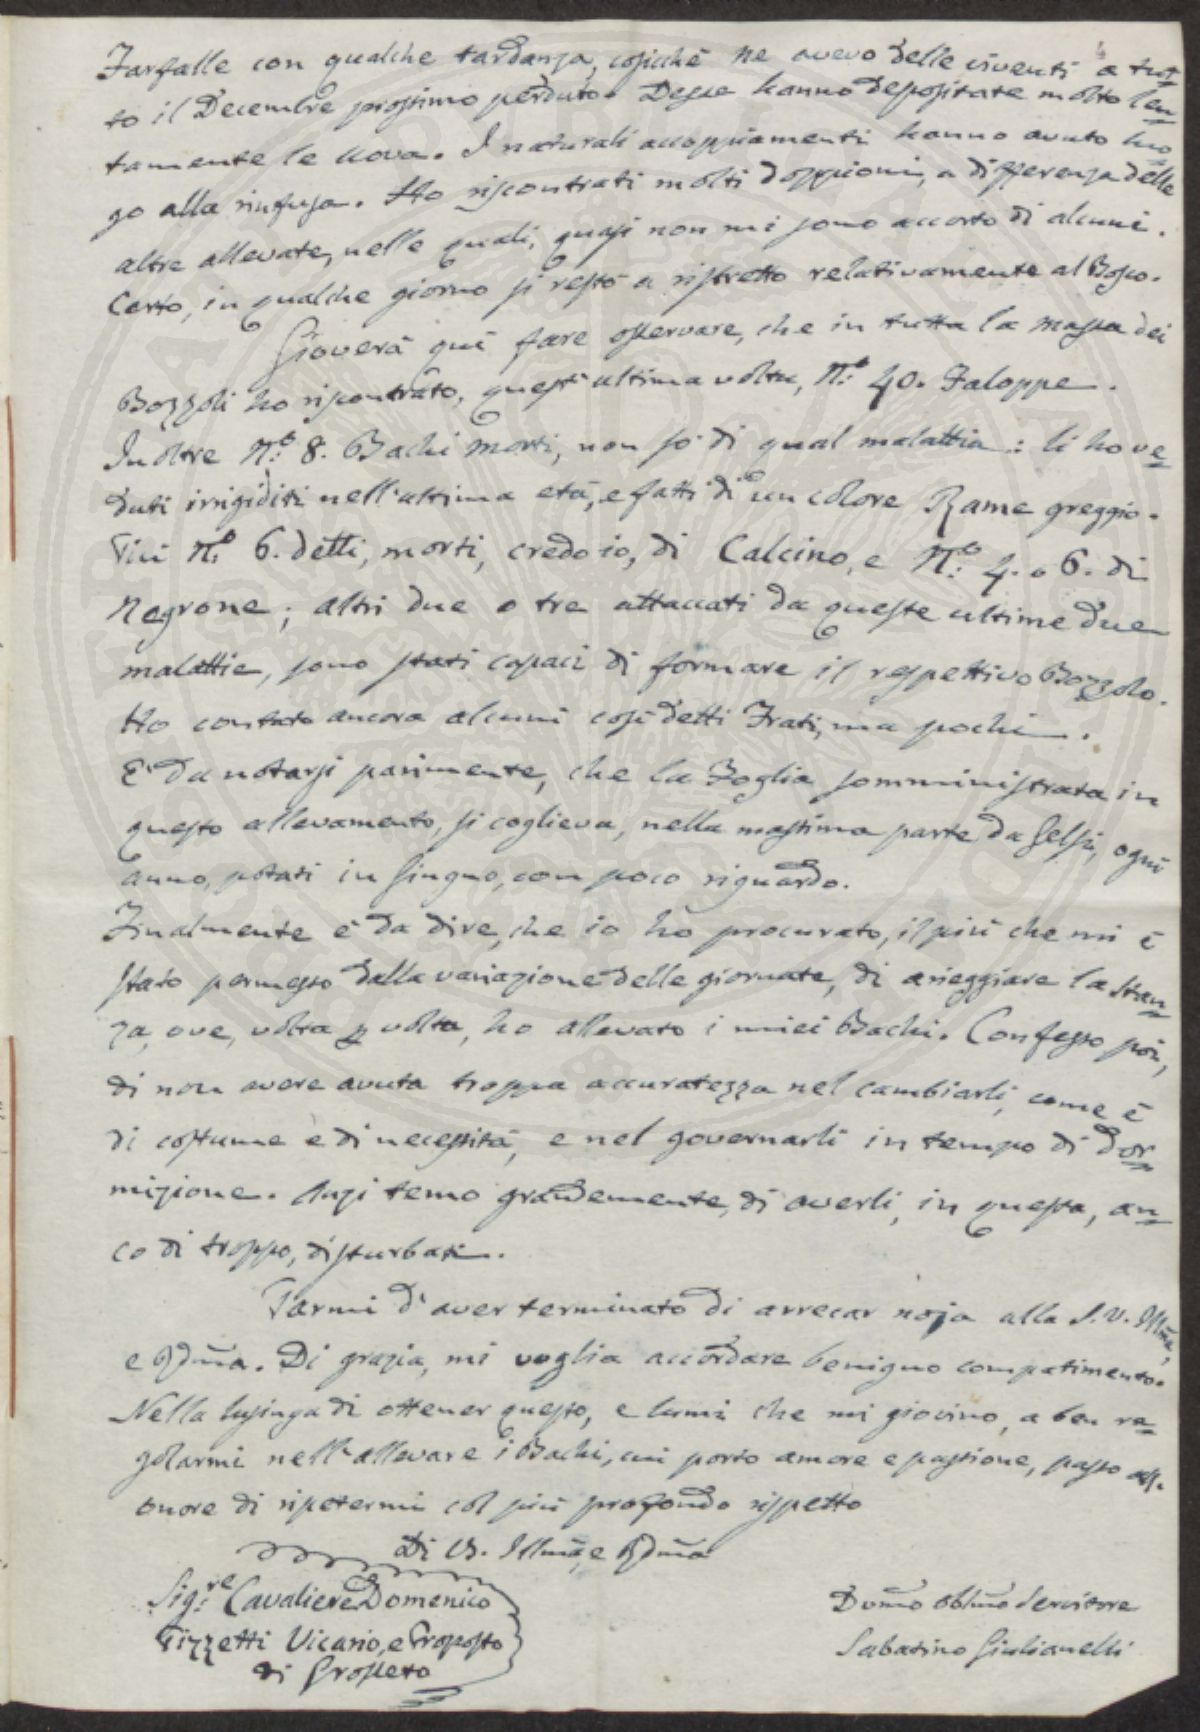 Farfalle con qualche tardanza, cosicchè ne avevo delle viventi a tut=
to il Decembre prossimo perduto. Desse hanno depositate molto len=
tamente le Uova. I naturali accoppiamenti hanno avuto luo=
go alla rinfusa. Ho riscontrati molti doppioni, a differenza delle
altre allevate, nelle quali, quasi non mi sono accorto di alcuni.
Certo, in qualche giorno si restò a ristretto relativamente al Bosco.
Gioverà quì fare osservare, che in tutta la massa dei
Bozzoli ho riscontrato, quest'ultima volta, N.° 40. Faloppe.
Inoltre N.° 8. Bachi morti, non sò di qual malattia: li ho ve=
duti irrigiditi nell'ultima età, e fatti di un colore Rame greggio.
Più N.° 6. detti, morti, credo io, di Calcino, e N.° 4. o 6. di
Negrone; altri due o tre attaccati da queste ultime due
malattie, sono stati capaci di formare il respettivo Bozzolo.
Ho contato ancora alcuni così detti Frati, ma pochi.
E' da notarsi parimente, che la Foglia somministrata in
questo allevamento, si coglieva, nella massima parte da Gelsi, ogni
anno, potati in Giugno, con poco riguardo.
Finalmente è da dire, che io hò procurato, il più che mi è
stato permesso dalla variazione delle giornate, di arieggiare la stan=
za, ove, volta p volta, ho allevato i miei Bachi. Confesso poi,
di non avere avuta troppa accuratezza nel cambiarli, come è
di costume e di necessità, e nel governarli in tempo di dor=
mizione. Anzi temo grandemente, di averli, in questa, an=
co di troppo, disturbati.
Parmi d'aver terminato di arrecar noja alla S. V. Illma,
e Rdma. Di grazia, mi voglia accordare benigno compatimento.
Nella lusinga di ottener questo, e lumi che mi giovino, a ben re=
golarmi nell'allevare i Bachi, cui porto amore e passione, passo all'
onore di ripetermi col più profondo rispetto
Di V. S. Illma, e Rdma
Sig.re Cavaliere Domenico
Pizzetti Vicario, e Proposto
di Grosseto
Dvmo Obblmo Servitore
Sabatino Giulianelli